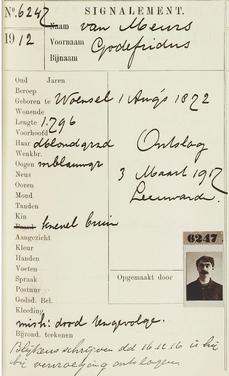 No. 6247 SIGNALEMENT.
1912 Naam van Meurs
Voornaam Godefridus
Bijnaam
Oud Jaren
Beroep
Geboren te Woensel 1 Aug's 1872
Wonende
Lengte 1.796
Voorhoofd
Haar dblondgrd Ontslag
Wenkbr.
Oogen mblauwgr
Neus 3 Maart 1917
Ooren Leeuwarden.
Mond
Tanden
Kin
Baard knevel bruin
Aangezicht
Kleur
Handen
Voeten
Spraak
Postuur
Godsd. Bel.
Kleeding
Opgemaakt door
6247
mish: dood tengevolge.
Bijzond. teekenen
Blijkens schrijven dd 16.12.16 is hij
bij vervroeging ontslagen